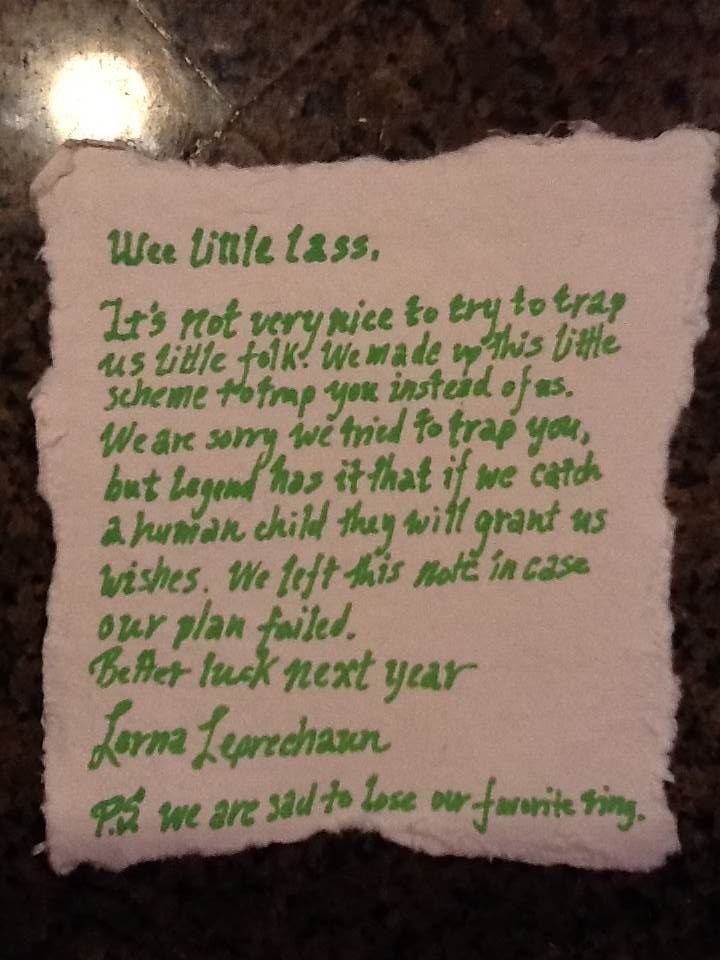 Wee little lass,
It's not very nice to try to trap
us little folk. We made up this little
scheme to trap you instead of us.
We are sorry we tried to trap you,
but legend has it that if we catch
a human child they will grant us
wishes. We left this note in case
our plan failed.
Better luck next year
Lorna Leprechaun
P.S we are sad to lose our favorite ring.